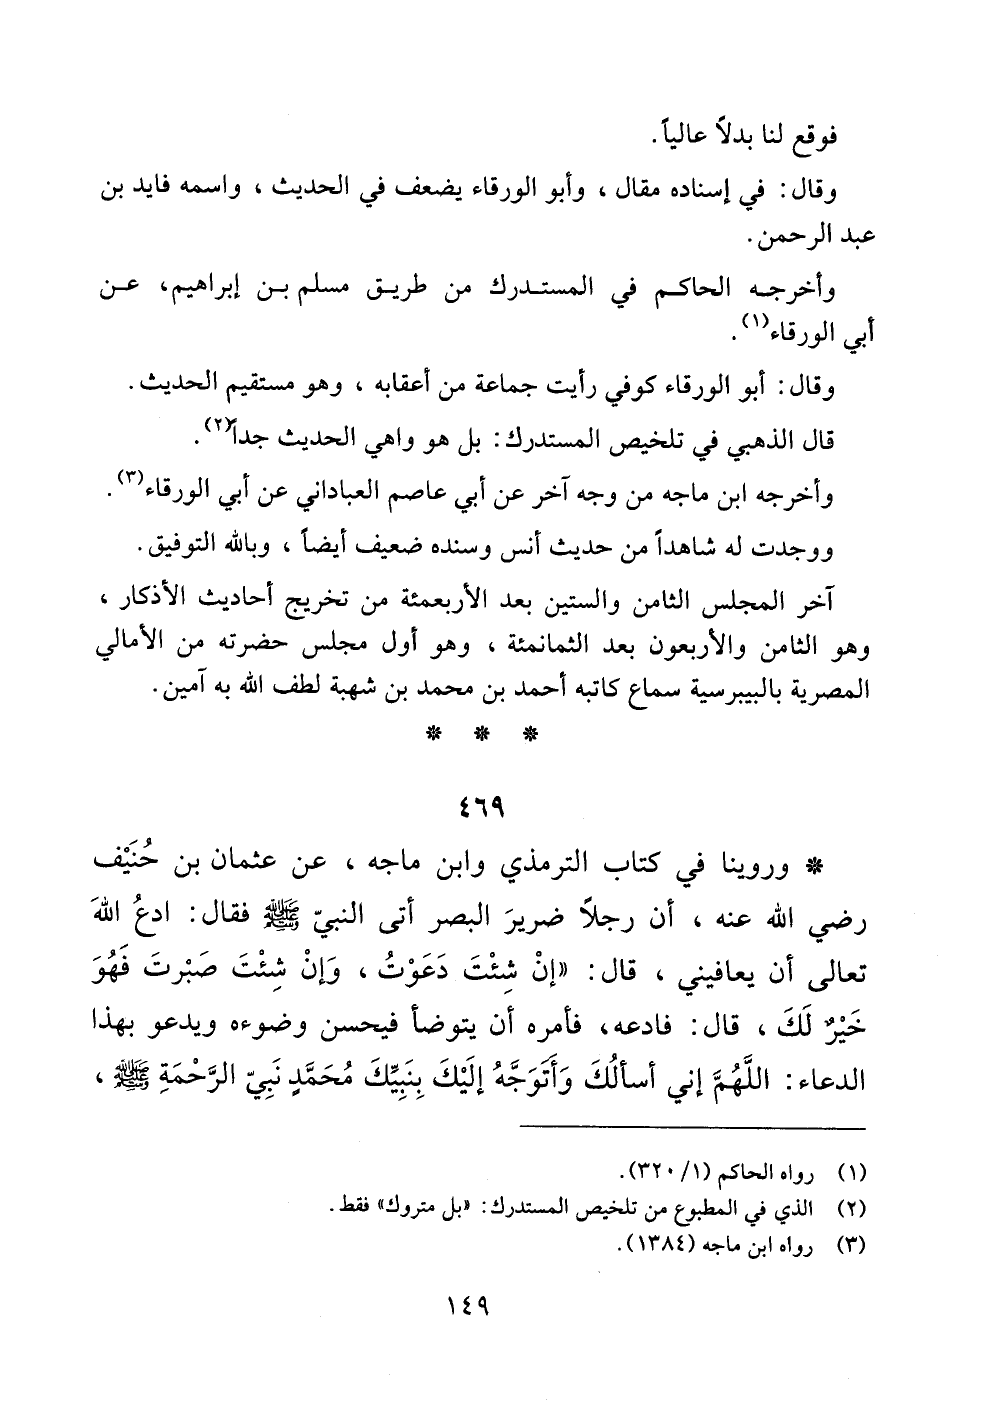 فوقع لنا بدلاً عالياً.
وقال: في إسناده مقال ، وأبو الورقاء يضعف في الحديث ، واسمه فايد بن
عبد الرحمن.
وأخرجه الحاكم في المستدرك من طريق مسلم بن إبراهيم، عن
أبي الورقاء(١).
وقال: أبو الورقاء كوفي رأيت جماعة من أعقابه ، وهو مستقيم الحديث.
قال الذهبي في تلخيص المستدرك: بل هو واهي الحديث جداً(٢).
وأخرجه ابن ماجه من وجه آخر عن أبي عاصم العباداني عن أبي الورقاء(٣).
ووجدت له شاهداً من حديث أنس وسنده ضعيف أيضاً ، وبالله التوفيق.
آخر المجلس الثامن والستين بعد الأربعمئة من تخريج أحاديث الأذكار ،
وهو الثامن والأربعون بعد الثمانمئة ، وهو أول مجلس حضرته من الأمالي
المصرية بالبيبرسية سماع كاتبه أحمد بن محمد بن شهبة لطف الله به آمين.
* * *
٤٦٩
* وروينا في كتاب الترمذي وابن ماجه ، عن عثمان بن حُنَيْف
رضي الله عنه ، أن رجلاً ضريرَ البصر أتى النبيّ ﷺ فقال: ادعُ اللهَ
تعالى أن يعافيني ، قال: «إنْ شِئْتَ دَعَوْتُ ، وَإنْ شِئْتَ صَبْرتَ فَهُوَ
خَيْرٌ لَكَ ، قال: فادعه، فأمره أن يتوضأ فيحسن وضوءه ويدعو بهذا
الدعاء: اللَّهُمَّ إني أسألُكَ وَأَتَوَجَّهُ إلَيْكَ بِنَبِيِّكَ مُحَمَّدٍ نَبِيّ الرَّحْمَةِ ﷺ ،
(١) رواه الحاكم (١/ ٣٢٠).
(٢) الذي في المطبوع من تلخيص المستدرك: «بل متروك» فقط.
(٣) رواه ابن ماجه (١٣٨٤).
١٤٩